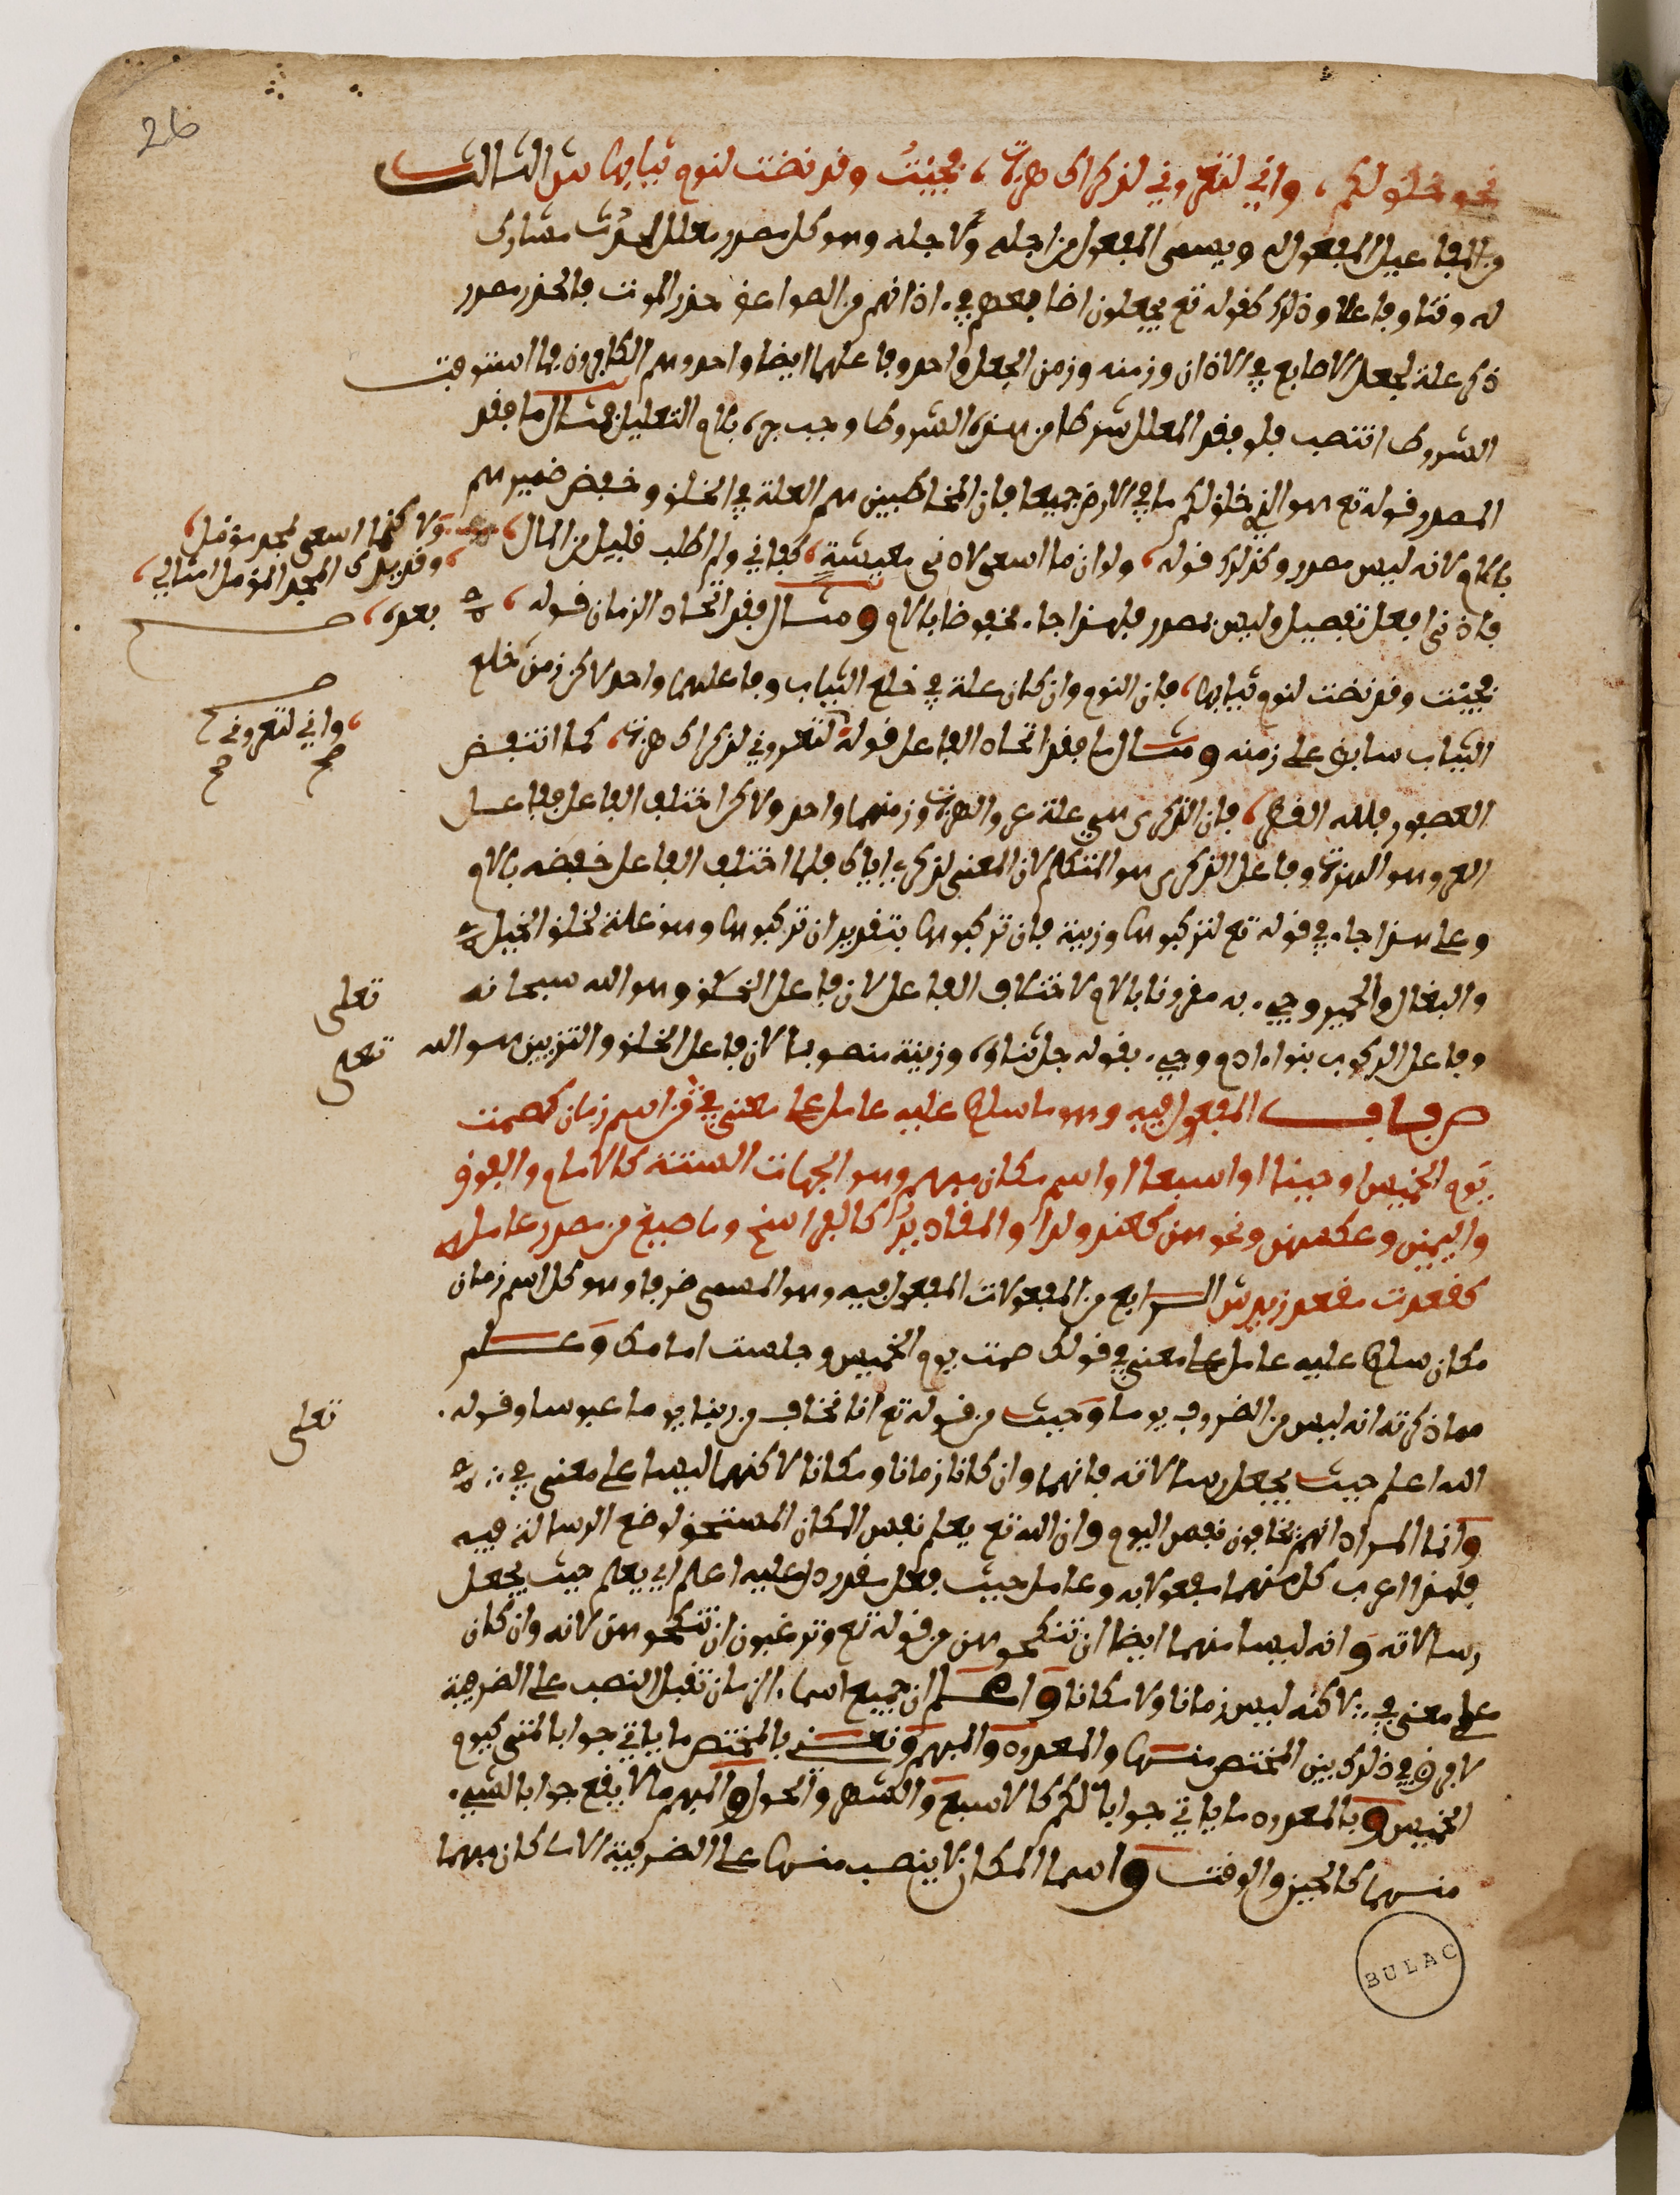 26
نحو خلق لكم، واني لتعروني لذكراك هزة، فجئتُ وقد نضت لنوم ثيابها ش الثالث
من المفاعيل المفعول له ويسمى المفعول من اجله ولاجله وهو كل مصدر معلل لحدث مشارك
له وقتا وفاعلا وذلك كقوله تع يجعلون اصابعهم في ءاذانهم من الصواعق حذر الموت فالحذر مصدر
ذكر علة لجعل الاصابع في الاذان وزمنه وزمن الجعل واحد وفاعلهما ايضا واحد وهم الكافرون فلما استوفيت
الشروط انتصب فلو فقد المعلل شرطا من هذه الشروط وجب جره بلام التعليل فمثال ما فقد
المصدر قوله تع هو الذي خلق لكم ما في الارض جميعا فان المخاطبين هم العلة في الخلق وخفض ضميرهم
باللام لانه ليس مصدر وكذلك قوله، ولو ان ما اسعى لادنى معيشةٍ، كفاني ولم اطلب قليل من المال،
ولاكنما اسعى لمجد مؤثل،
وقد يدرك المجد المؤثل امثالي،
فادنى افعل تفضيل وليس بمصدر فلهذا جاء مخفوضا باللام ومثال ما فقد اتحاد الزمان قوله،
بعده،
فجئت وقد نضت لنوم ثيابها، فان النوم وان كان علة في خلع الثياب وفاعلهما واحد لاكن زمن خلع
الثياب سابق على زمنه ومثال ما فقد اتحاد الفاعل قوله لتعروني لذكراك هزة، كما انتفض
، واني لتعروني
صح
صح
العصفور بلله القطر، فان الذكرى هي علة عرو الهزة وزمنهما واحد ولاكن اختلف الفاعل ففاعل
العرو هو الهزة وفاعل الذكرى هو المتكلم لان المعنى لذكري اياك فلما اختلف الفاعل خفضه باللام
وعلى هذا جاء في قوله تع لتركبوها وزينة فان تركبوها بتقدير ان تركبوها وهو علة لخلق الخيل
والبغال والحمير وجيء به مقرونا باللام لاختلاف الفاعل لان فاعل الخلق وهو الله سبحانه
تعلى
وفاعل الركوب بنوا ءادم وجيء بقوله جل ثناؤه وزينة منصوبا لان فاعل الخلق والتزيين هو الله
تعلى
ص باب المفعول فيه وهو ما سلط عليه عامل على معنى في من اسم زمان كصمت
يوم الخميس او حينا او اسبعا او اسم مكان مبهم وهو الجهات الستة كالامام والفوق
واليمين وعكسهن ونحوهن كعند ولدا والمقادير كالفراسخ وما صيغ من مصدر عامله
كقعدت مقعد زيد ش الرابع من المفعولات المفعول فيه وهو المسمى ضرفا وهو كل اسم زمان
مكان سلط عليه عامل على معنى في قولك صمت يوم الخميس وجلست امامك وعلم
مما ذكرته انه ليس من الضروف يوما وحيث من قوله تع انا نخاف من ربنا يوما عبوسا وقوله
تعلى
الله اعلم حيث يجعل رسالاته فانهما وان كانا زمانا ومكانا لاكنهما ليسا على معنى في
وانما المراد انهم يخافون نفس اليوم وان الله تع يعلم نفس المكان المستحق لوضع الرسالة فيه
فلهذا اعرب كل منهما مفعولا به وعامل حيث فعل مقدر دل عليه اعلم اي يعلم حيث يجعل
رسالاته وانه ليس منهما ايضا ان تنكحوهن من قوله تع وترغبون ان تنكحوهن لانه وان كان
على معنى في لاكنه ليس زمانا ولا مكانا واعلم ان جميع اسماء الزمان تقبل النصب على الضرفية
لا فرق في ذلك بين المختص منها والمعدود والمبهم ونعني بالمختص ما ياتي جوابا لمتى كيوم
الخميس وبالمعدود ما ياتي جوابا لكم كالاسبع والشهر والحول والمبهم ما لا يقع جوابا لشيء
منهما كالحين والوقت واسما المكان لا ينصب منها على الضرفية الا ما كان مبهما
BULAC